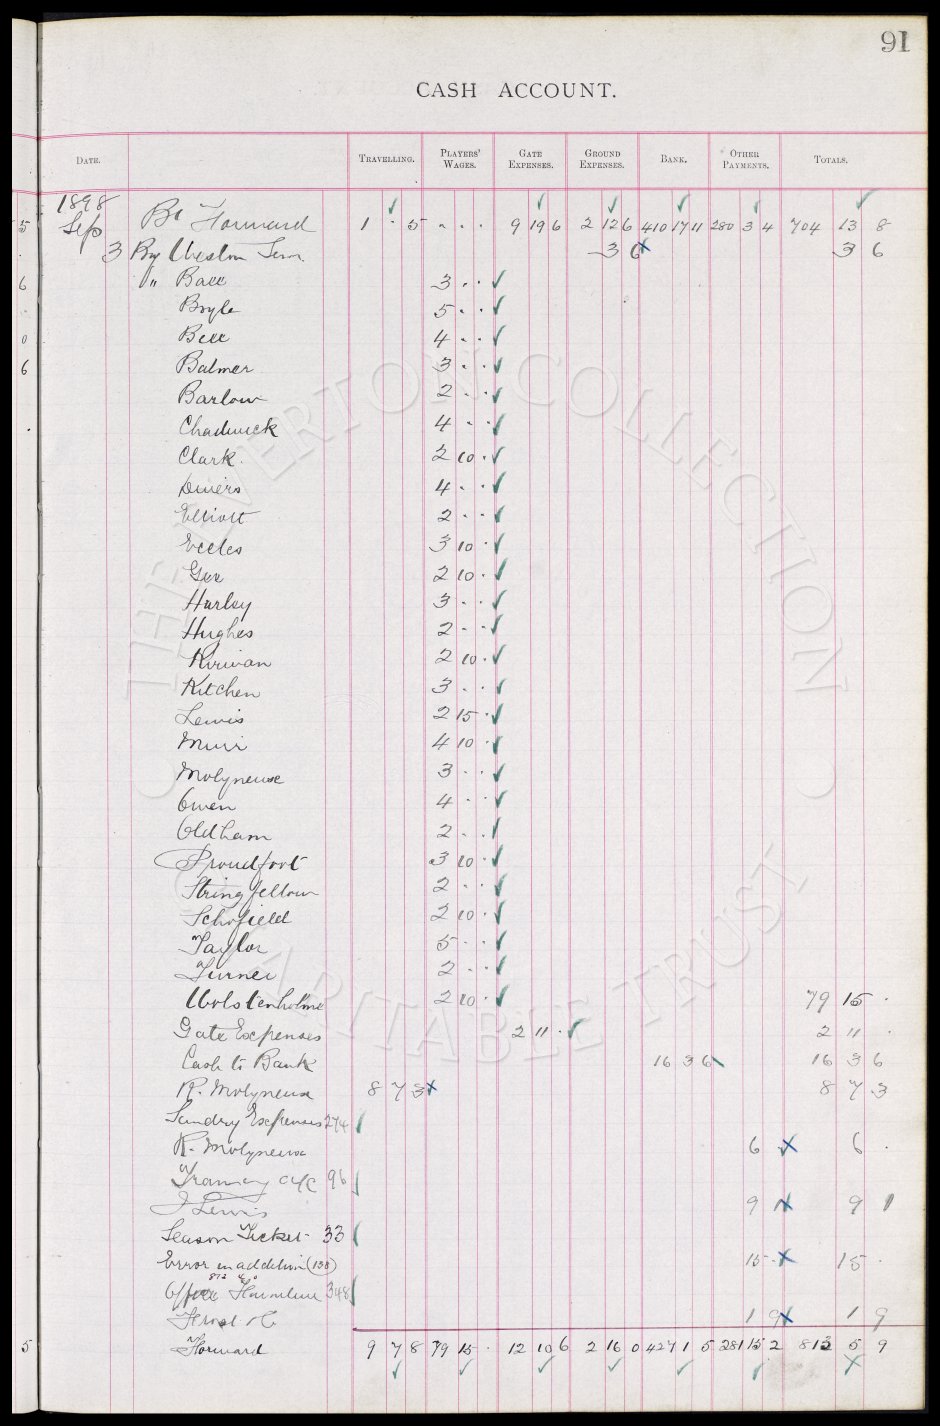 91
CASH ACCOUNT.
DATE. TRAVELLING. PLAYERS' WAGES. GATE EXPENSES. GROUND EXPENSES. BANK. OTHER PAYMENTS. TOTALS.
1898
Sep Bt Forward 1 · 5 · · · 9 19 6 2 12 6 410 17 11 280 3 4 704 13 8
3 By Weston 3 6 3 6
" Ball 3 · ·
Boyle 5 · ·
Bell 4 · ·
Balmer 3 · ·
Barlow 2 · ·
Chadwick 4 · ·
Clark. 2 10 ·
Divers 4 · ·
Elliott 2 · ·
Eccles 3 10 ·
Gee 2 10 ·
Hurley 3 · ·
Hughes 2 · ·
Kirwan 2 10 ·
Kitchen 3 · ·
Lewis 2 15 ·
Muir 4 10 ·
Molyneux 3 · ·
Owen 4 · ·
Oldham 2 · ·
Proudfoot 3 10 ·
Stringfellow 2 · ·
Schofield 2 10 ·
Taylor 5 · ·
Turner 2 · ·
Wolstenholme 2 10 · 79 15 ·
Gate Expenses 2 11 · 2 11 ·
Cash to Bank 16 3 6 16 3 6
R. Molyneux 8 7 3 8 7 3
Sundry Expenses 274
R. Molyneux 6 · 6 ·
Tramway a/c 96
J Lewis 9 1 9 1
Season Ticket 33
Error in addition (138) 15 · 15 ·
Office Furniture 348
1 9 1 9
Forward 9 7 8 79 15 · 12 10 6 2 16 0 427 1 5 281 15 2 813 5 9
5
·
6
0
6
·
5
THE EVERTON COLLECTION
CHARITABLE TRUST